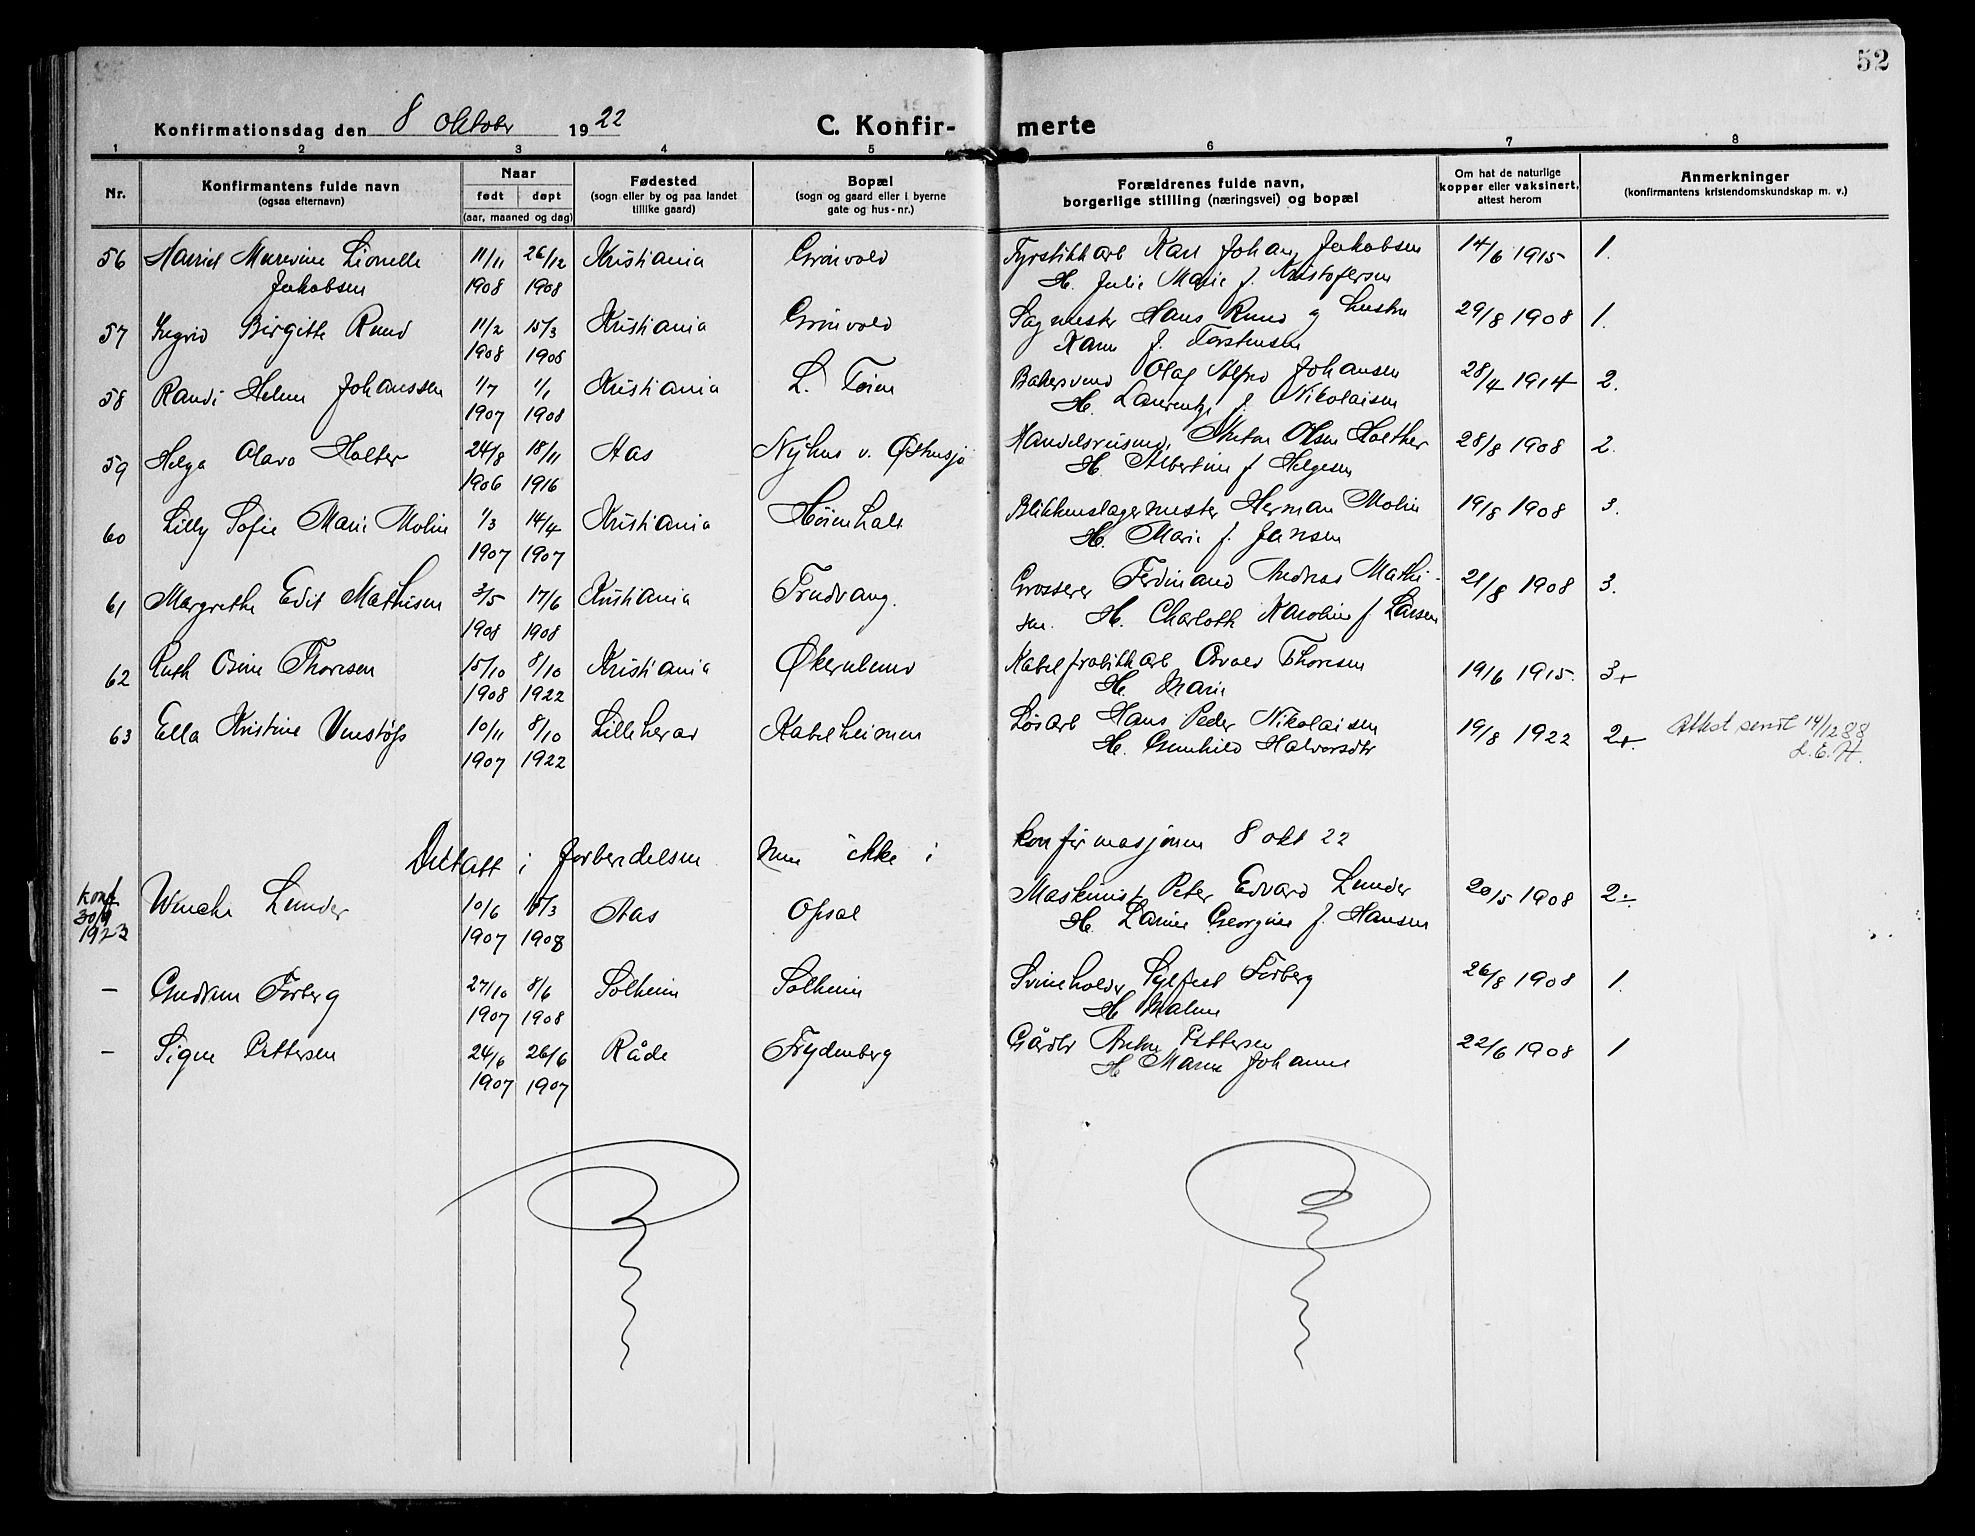 52
Konfirmationsdag den 8 oktober 1922
C. Konfirmerte
1 2 3 4 5 6 7 8
Nr.
Konfirmantens fulde navn
(ogsaa efternavn)
Naar
født døpt
(aar, maaned og dag)
Fødested
(sogn eller by og paa landet
tillike gaard)
Bopæl
(sogn og gaard eller i byerne
gate og hus-nr.)
Forældrenes fulde navn,
borgerlige stilling (næringsvei) og bopæl
Om hat de naturlige
kopper eller vaksinert,
attest herom
Anmerkninger
(konfirmantens kristendomskundskap m. v.)
56 Lionelle 11/11 26/12 Kristiania Grønvold Fyrstikkarb Karl Johan Jakobsen 14/6 1915 1.
Jakobsen 1908 1908 H. Julie Marie f. Kristofersen
57 Ingrid Birgitte Ruud 11/2 15/3 Kristiania Grønvold Sagmester Hans Ruud og hustru 29/8 1908 1.
1908 1908 f. Torstensen
58 Randi Helene Johanssen 1/7 1/1 Kristiania L. Tøien Bakersvend Olaf Alfred Johansen 28/4 1914 2.
1907 1908 H. f. Nikolaisen
59 Helga Olava Holter 24/8 18/11 Aas Nyhus v. Østensjø Handelsreisende Anton Olsen Holther 28/8 1908 2.
1906 1916 H. Albertine f Helgesen
60 Lilly Sofie Marie Molin 1/3 14/4 Kristiania Høienhall Blikkenslagermester Herman Molin 19/8 1908 3.
1907 1907 H. Marie f. Jansen
61 Margrethe Edit Mathisen 3/5 17/6 Kristiania Trudvang. Grosserer Ferdinand Andreas Mathi-
1908 1908 sen. H. Charloth Karoline f Larsen 21/8 1908 3.
62 Ruth Osine Thoresen 15/10 8/10 Kristiania Økernlund Kabelfabrikkarb Osvald Thoresen 19/6 1915. 3+
1908 1922 H. Marie
63 Ella Kristine Venstøp 10/11 8/10 Lilleherad Kabelheimen Løsarb Hans Peder Nikolaisen 19/8 1922 2+. Attest sendt 14/12 88
1907 1922 H. Gunhild Halvorsdtr L.E.H.
Deltatt i forberedelsen men ikke i konfirmasjonen 8 okt 22
konf. 30/9 1923 Wenche Lunder 10/6 15/3 Aas Opsal Maskinist Peter Edvard Lunder 20/5 1908 2
1907 1908 H. Georgine f. Hansen
- Gudrun Forberg 27/10 8/6 Solheim Solheim Svineholder Sylfest Forberg 26/8 1908 1.
1907 1908 H Malene
- Signe Pettersen 24/6 26/6 Råde Frydenberg Gårdbr Anton Pettersen 22/6 1908 1
1907 1907 H Marie Johanne